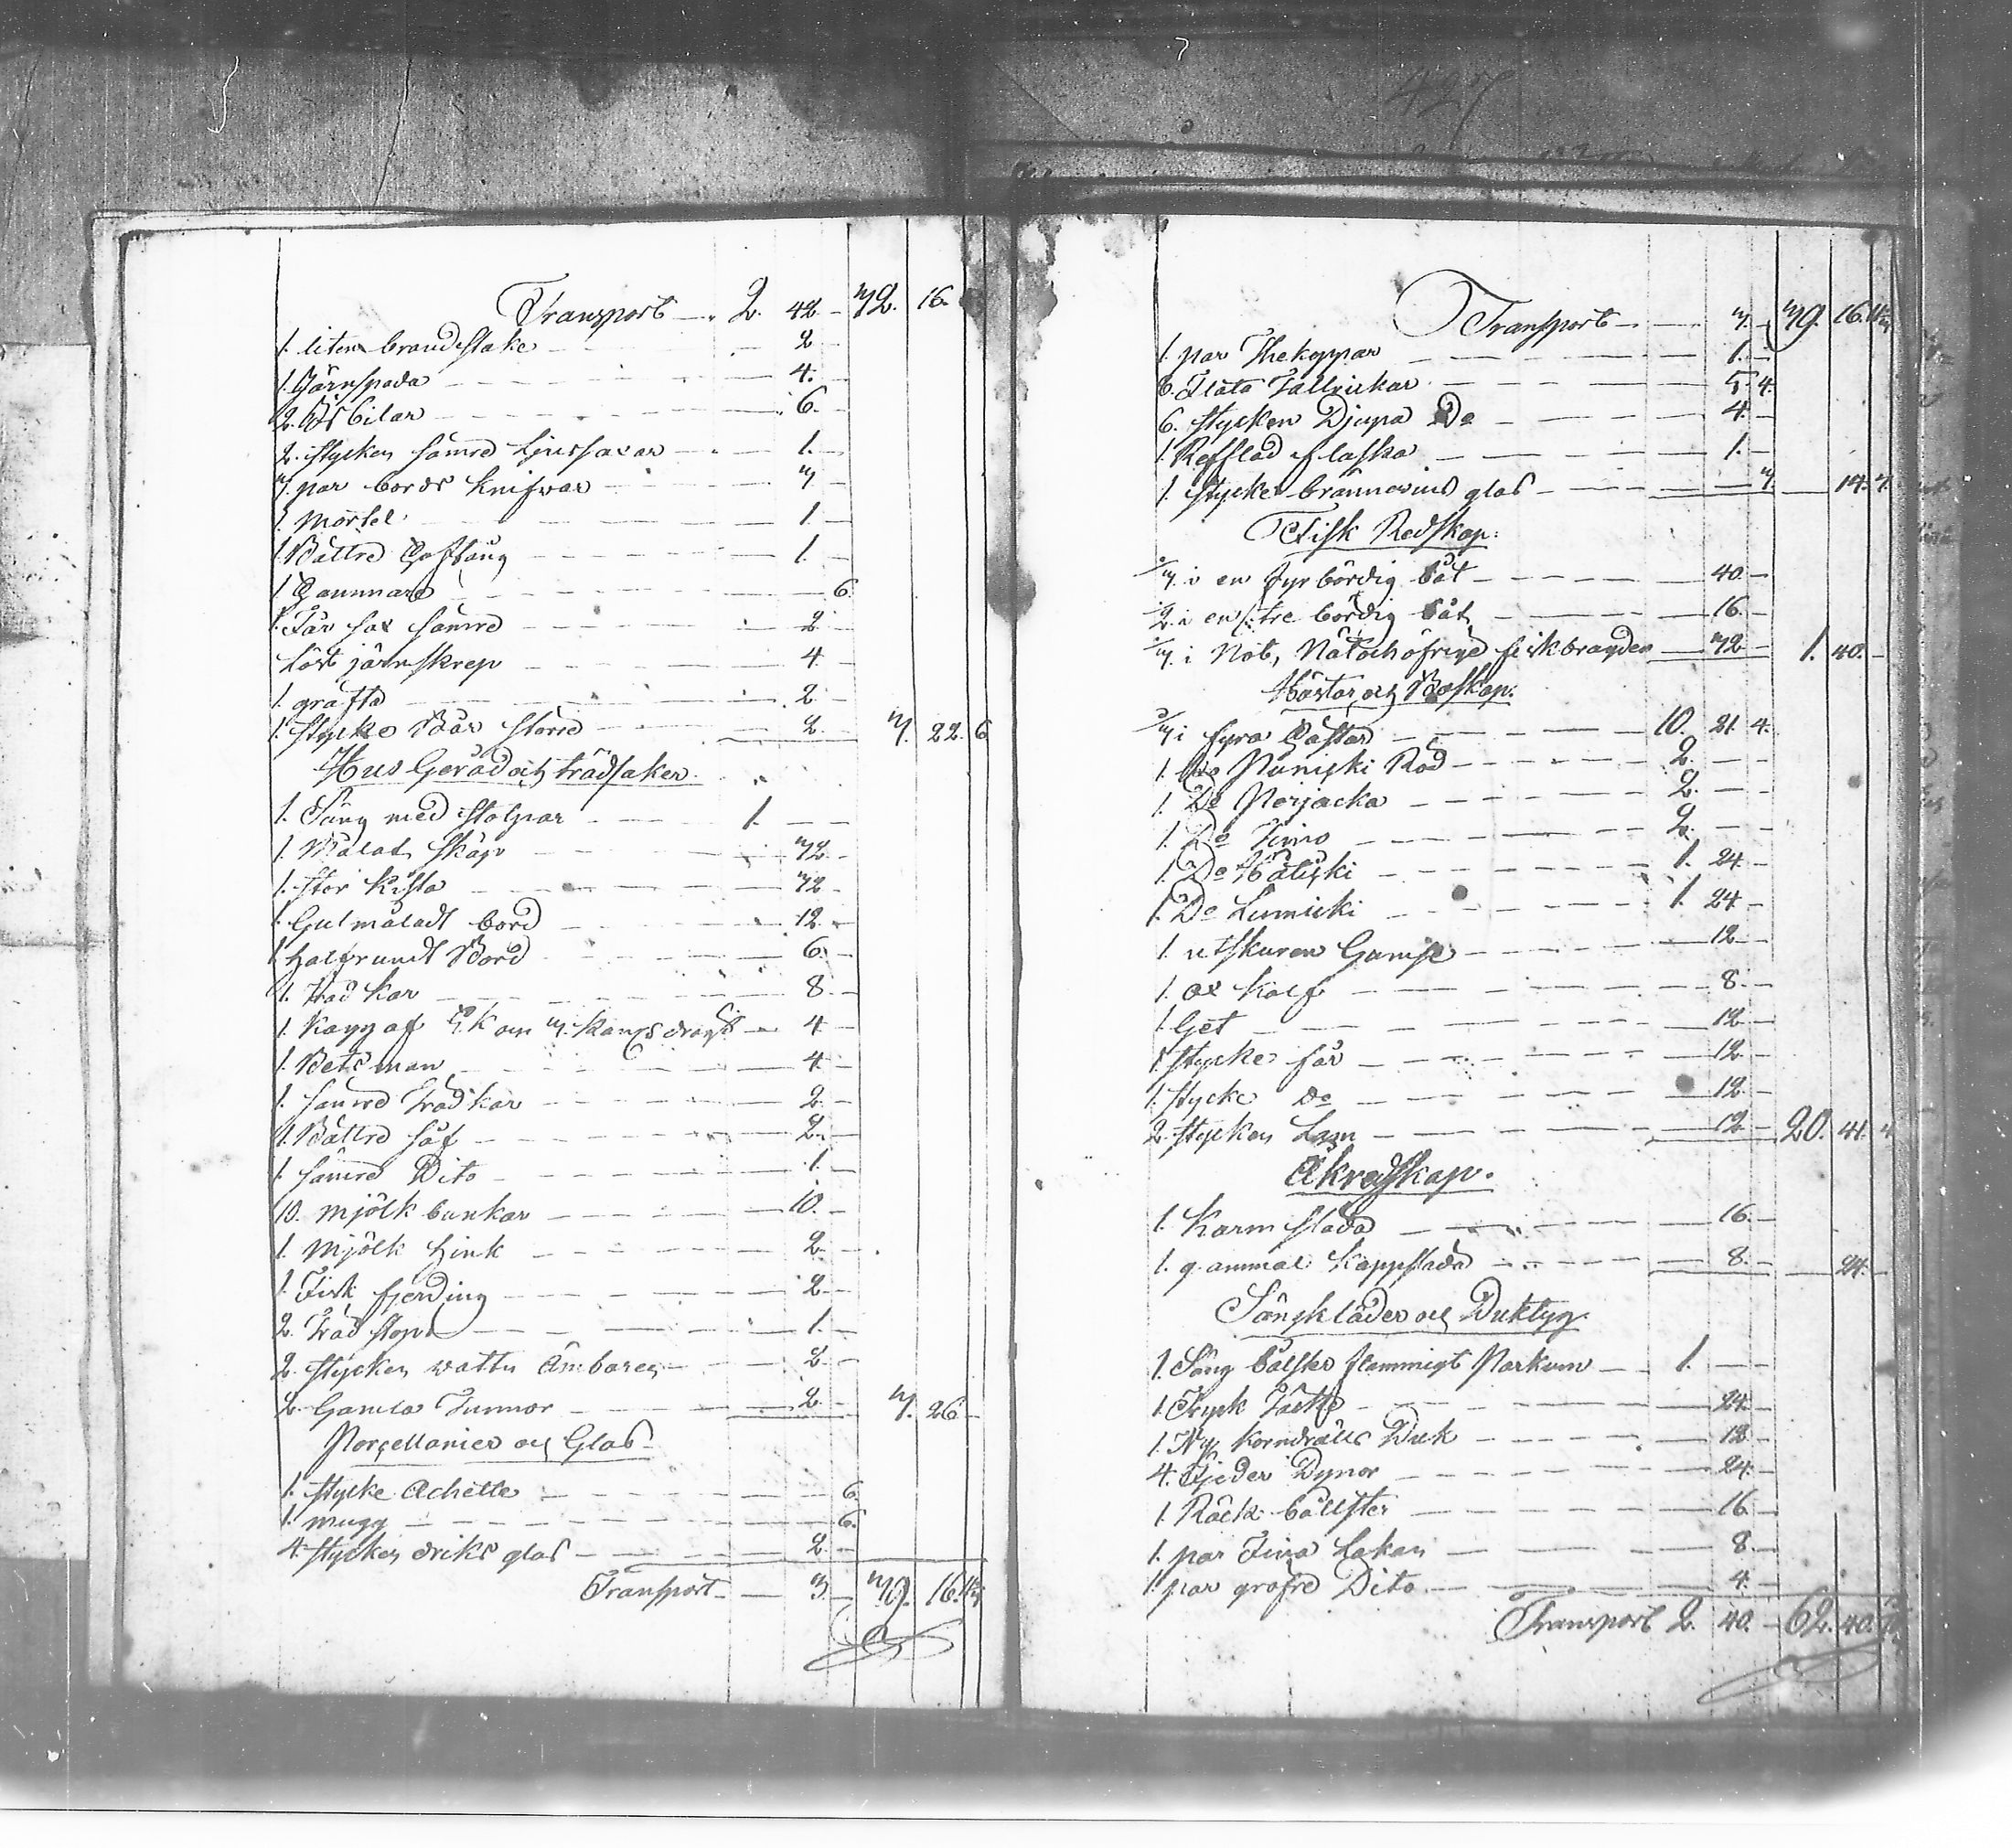 427
Transport — 2. 42 — 32. 16.
1. liten brandstake — 2 —
1. Järnspada — 4. —
2. Bilar — 6. —
2. stycken sämre Ljussaxar — 1. —
3. par bords knifvar — 3 —
1. Mortel — 1. —
1. Bättre — 1. —
1. Hammare — 6.
1. Får sax sämre — 2 —
Löst järnskrep — 4 —
1. gräfta — 2 —
1. stycke Bår större — 2. — 3. 22. 6
Hus Geråd och trädsaker.
1. Säng med stolpar — 1. — —
1. Målat skåp — 32 —
1. stor kista — 32 —
1. Gulmåladt bord — 12. —
1. halfrundt Bord — 6. —
1. träd kar — 8. —
1. Kagg af — 4 —
1. Betsman — 4 —
1. sämre träd kar — 2 —
1. Bättre såf — 2. —
1. sämre Dito — 1. —
10. mjölk bunkar — 10. —
1. Mjölk hink — 2. —
1. Fisk fjerding — 2 —
2. Träd stop — 1. —
2. stycken vattu ämbaren — 2 —
2. Gamla Tunnor — 2 — 3. 26 —
Porcellaner och Glas
1. stycke Achette — 6.
1. mugg — 6.
4. stycken driks glas — 2 —
Transport — 3. — 39. 16.
Transport — 3. — 39. 16.
1. par Thekoppar — 1. —
6. Flata Tallrickar — 5. 4.
6. stycken Djupa Do — 4. —
1. Refflad flaska — 1. —
1. stycke brännevins glas — 3. — 14. 7.
Fisk Redskap:
i en fyrbördig båt — 40. —
i en tre bördig båt — 16. —
i Not, Nät och öfrige fiskbragder — 32 — 1. 40. —
Hästar och Boskap.
i fyra Hästar — 10. 21. 4.
1. Ko Puniski Röd — 2. — —
1. Do Norjacka — 2. — —
1. Do Fimo — 2. — —
1. Do Hätiski — 1. 24. —
1. Do Lumicki — 1. 24. —
1. utskuren Gamse — 12 —
1. ox kalf — 8. —
1. Get — 12 —
1. stycke får — 12 —
1. stycke Do — 12 —
2. stycken Lam — 12 — 20. 41. 4
Åkredskap.
1. Karm släda — 16. —
1. gammal Kappsläda — 8. — 24. —
Sängkläder och Duktyg
1. Säng bolster flammigt Parkum — 1. — —
1. Tryck Täcke — 24. —
1. Ny korndrälls Duk — 12 —
4. Fjeder Dynor — 24. —
1. Räck bållster — 16 —
1. par Fina Lakan — 8. —
1. par grofre Dito — 4. —
Transport 2. 40. — 62. 40.